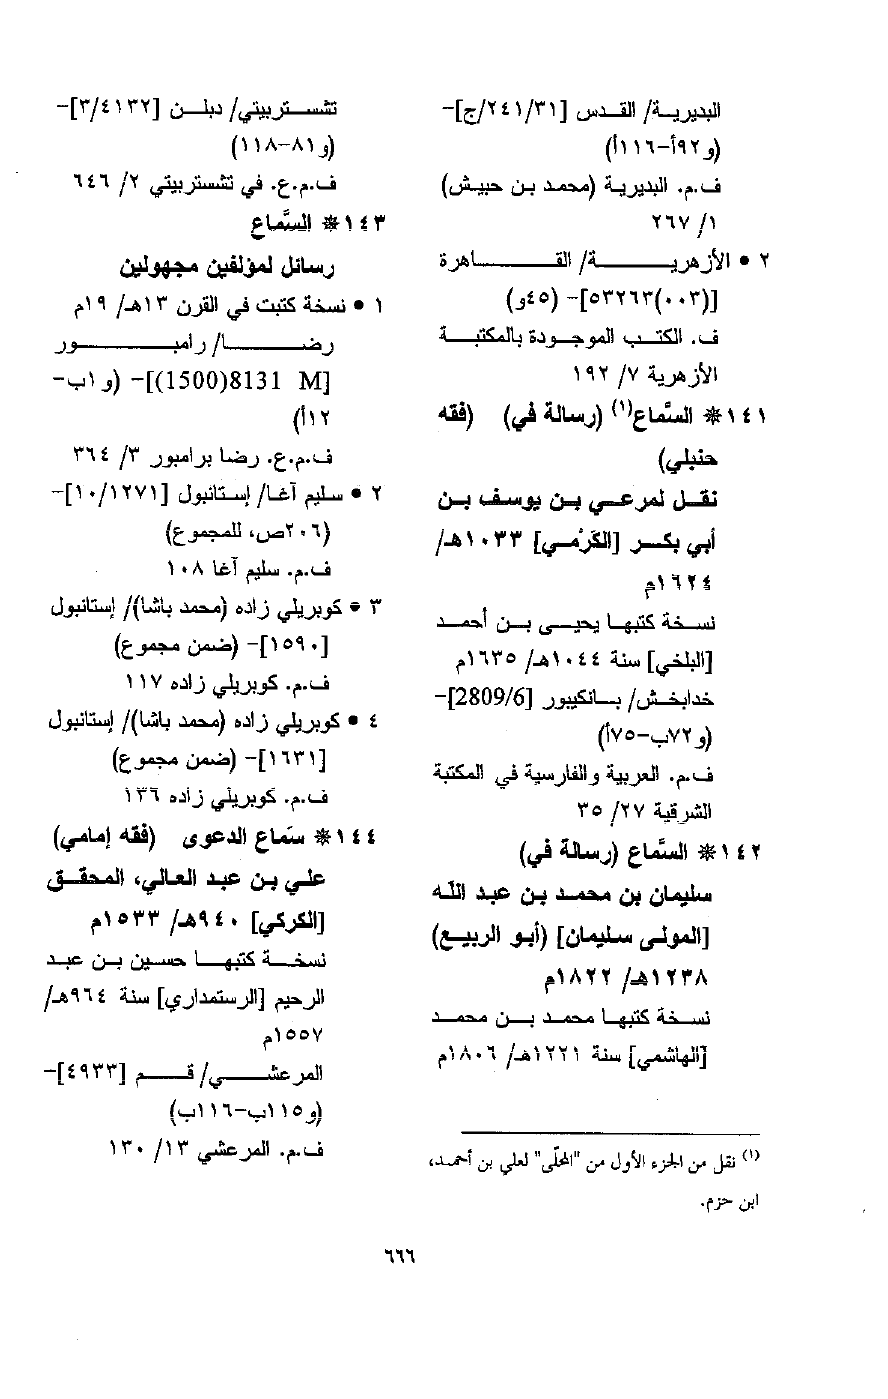 البديرية/ القدس [٢٤١/٣١/ج]-
(و٩٢أ-١١٦أ)
ف.م. البديرية (محمد بن حبيش)
١/ ٢٦٧
٢ • الأزهرية/ القاهرة
[(٠٠٣)٥٣٢٦٣]- (٤٥و)
ف. الكتب الموجودة بالمكتبة
الأزهرية ٧/ ١٩٢
١٤١* السَّماع(١) (رسالة في) (فقه
حنبلي)
نقل لمرعي بن يوسف بن
أبي بكر [الكَرْمي] ١٠٣٣هـ/
١٦٢٤م
نسخة كتبها يحيى بن أحمد
[البلخي] سنة ١٠٤٤هـ/ ١٦٣٥م
خدابخش/ بانكيبور [2809/6]-
(و٧٢ب-٧٥أ)
ف.م. العربية والفارسية في المكتبة
الشرقية ٢٧/ ٣٥
١٤٢* السَّماع (رسالة في)
سليمان بن محمد بن عبد الله
[المولى سليمان] (أبو الربيع)
١٢٣٨هـ/ ١٨٢٢م
نسخة كتبها محمد بن محمد
[الهاشمي] سنة ١٢٢١هـ/ ١٨٠٦م
(١) نقل من الجزء الأول من "المحلّى" لعلي بن أحمد،
ابن حزم.
تشستربيتي/ دبلن [٣/٤١٣٢]-
(و٨١-١١٨)
ف.م.ع. في تشستربيتي ٢/ ٦٤٦
١٤٣* السَّماع
رسائل لمؤلفين مجهولين
١ • نسخة كتبت في القرن ١٣هـ/ ١٩م
رضا/ رامبور
[M 8131(1500)]- (و١ب-
١٢أ)
ف.م.ع. رضا برامبور ٣/ ٣٦٤
٢ • سليم آغا/ إستانبول [١٠/١٢٧١]-
(٢٠٦ص، للمجموع)
ف.م. سليم آغا ١٠٨
٣ • كوبريلي زاده (محمد باشا)/ إستانبول
[١٥٩٠]- (ضمن مجموع)
ف.م. كوبريلي زاده ١١٧
٤ • كوبريلي زاده (محمد باشا)/ إستانبول
[١٦٣١]- (ضمن مجموع)
ف.م. كوبريلي زاده ١٣٦
١٤٤* سَماع الدعوى (فقه إمامي)
علي بن عبد العالي، المحقق
[الكركي] ٩٤٠هـ/ ١٥٣٣م
نسخة كتبها حسين بن عبد
الرحيم [الرستمداري] سنة ٩٦٤هـ/
١٥٥٧م
المرعشي/ قم [٤٩٣٣]-
(و١١٥ب-١١٦ب)
ف.م. المرعشي ١٣/ ١٣٠
٦٦٦